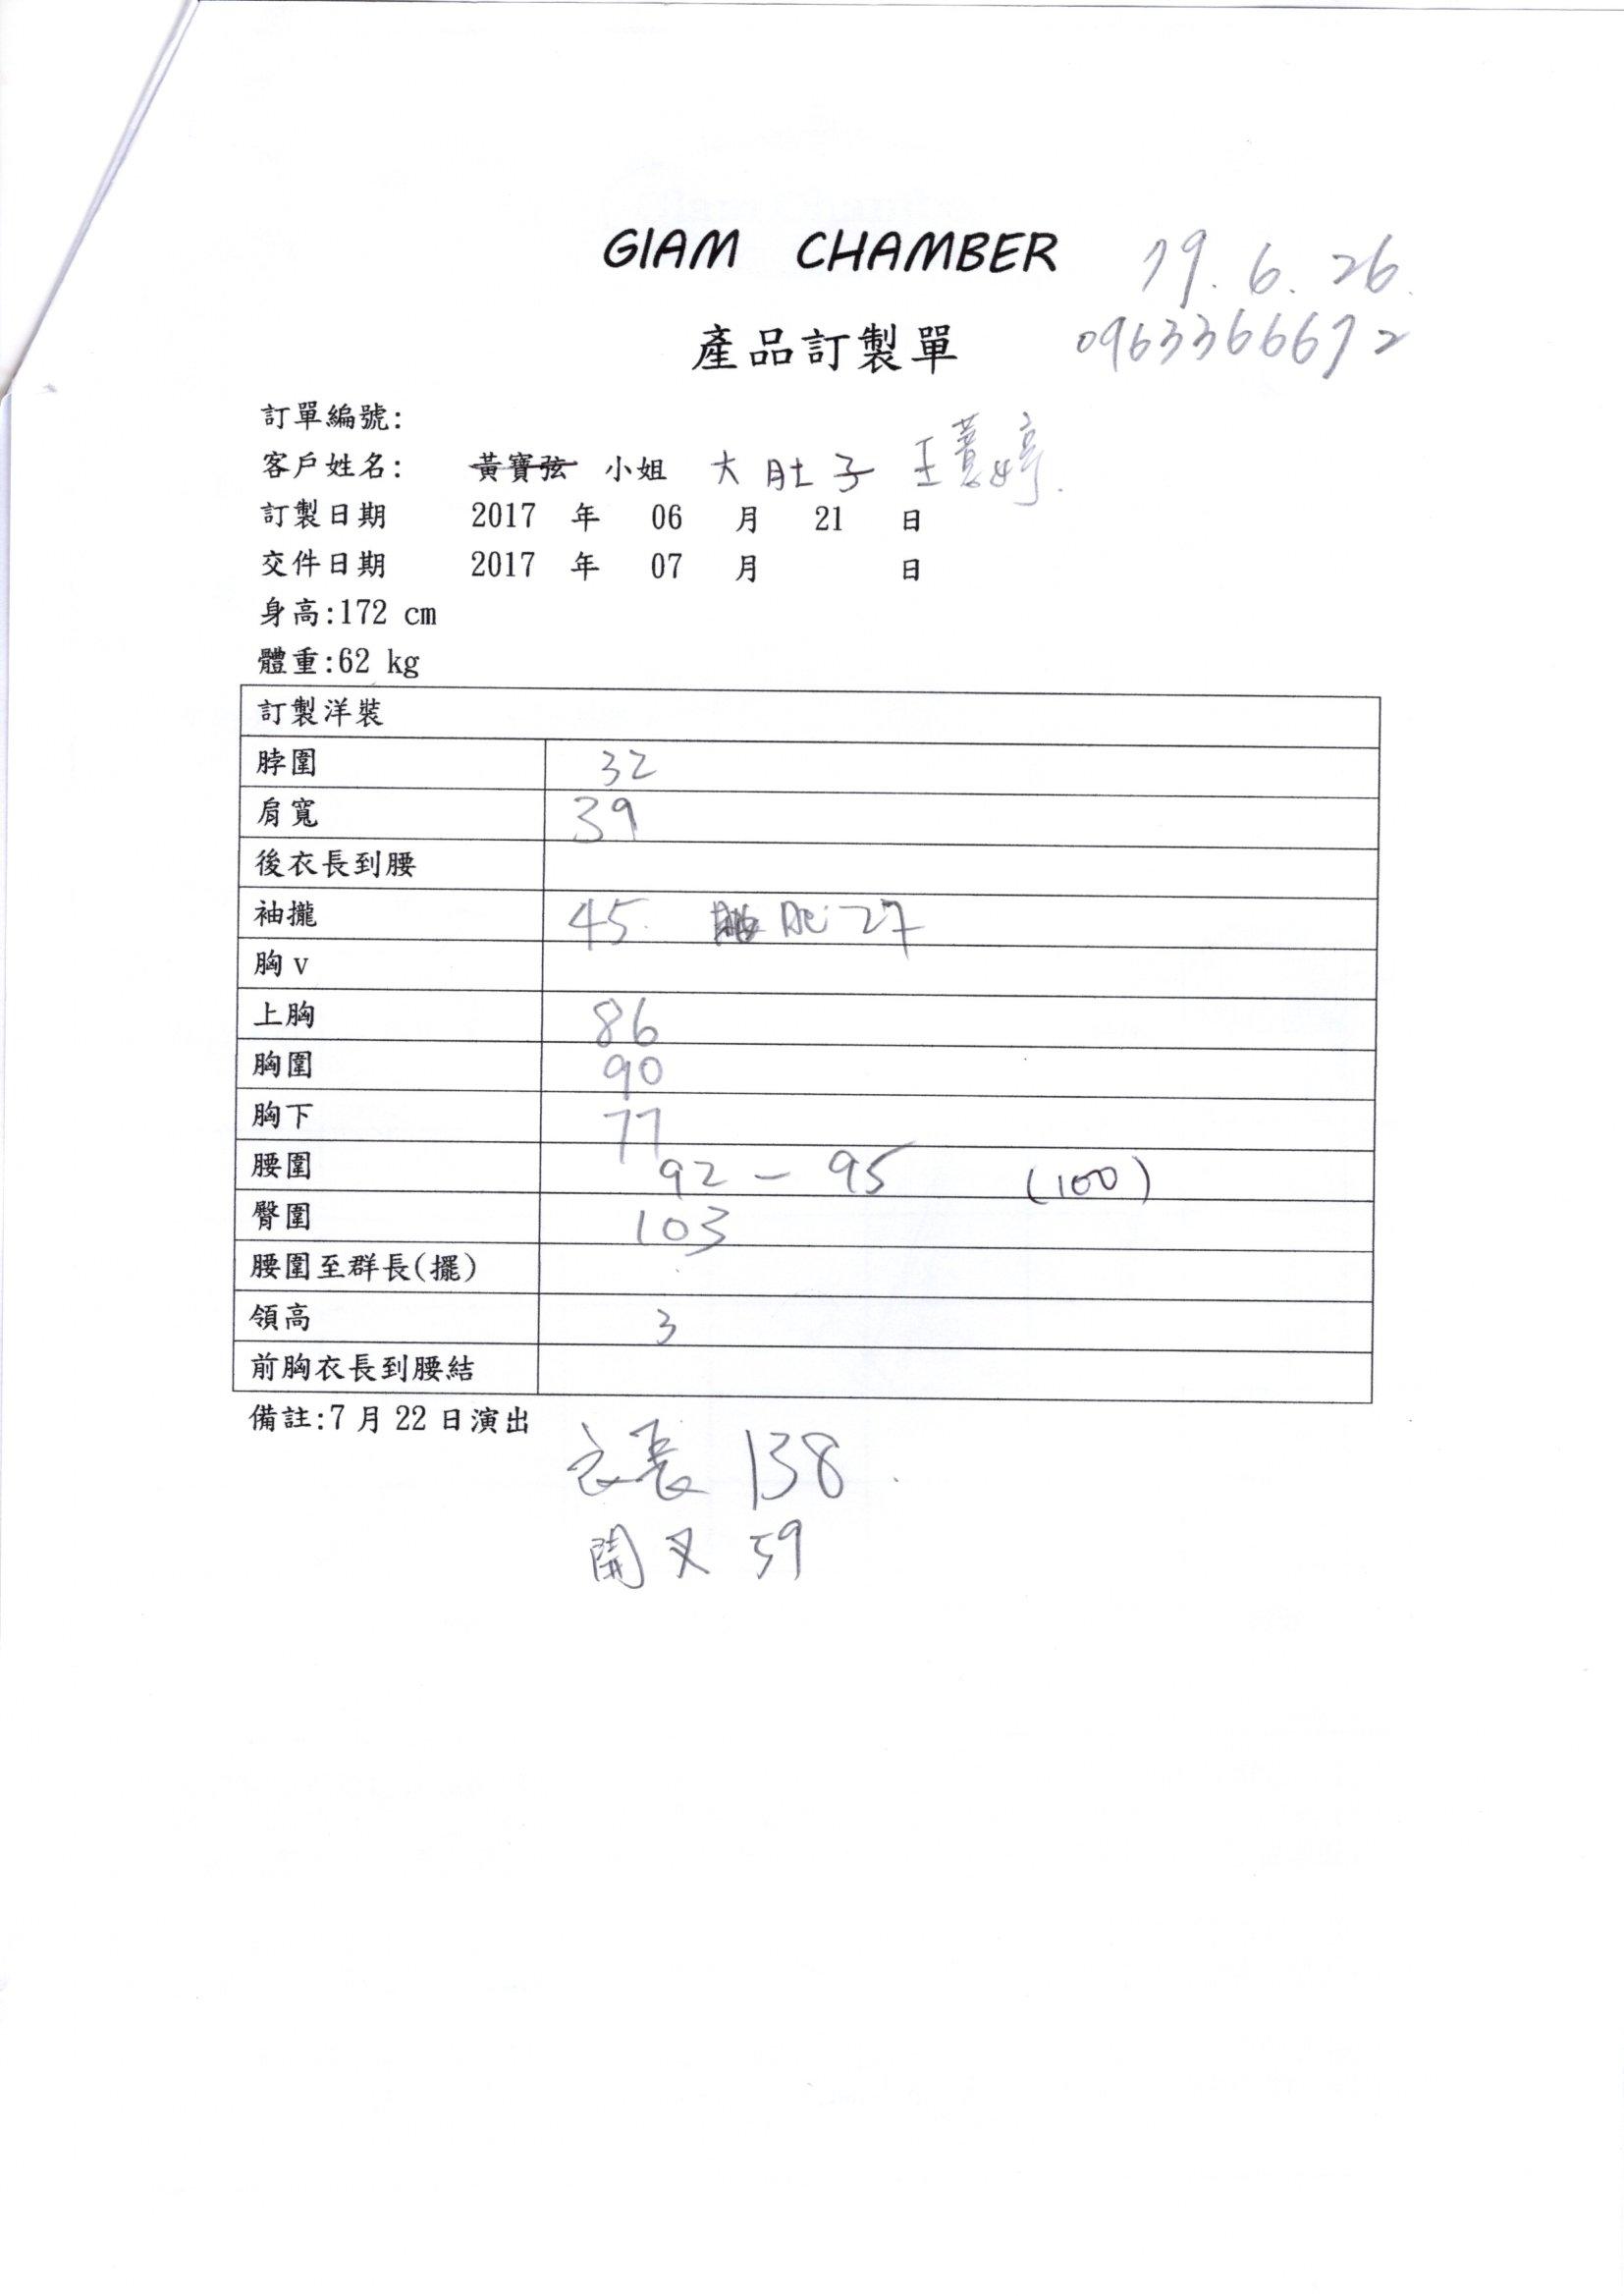 GIAM CHAMBER
79.6.26.
產品訂製單
0963366672
訂單編號:
客戶姓名: 黃寶弦 小姐 大肚子 王薏婷.
訂製日期 2017 年 06 月 21 日
交件日期 2017 年 07 月 日
身高:172 cm
體重:62 kg
訂製洋裝
脖圍 32
肩寬 39
後衣長到腰
袖攏 45. 27
胸v
上胸 86
胸圍 90
胸下 77
腰圍 92 - 95 (100)
臀圍 103
腰圍至群長(擺)
領高 3
前胸衣長到腰結
備註:7月22日演出
衣長 138
開叉 59